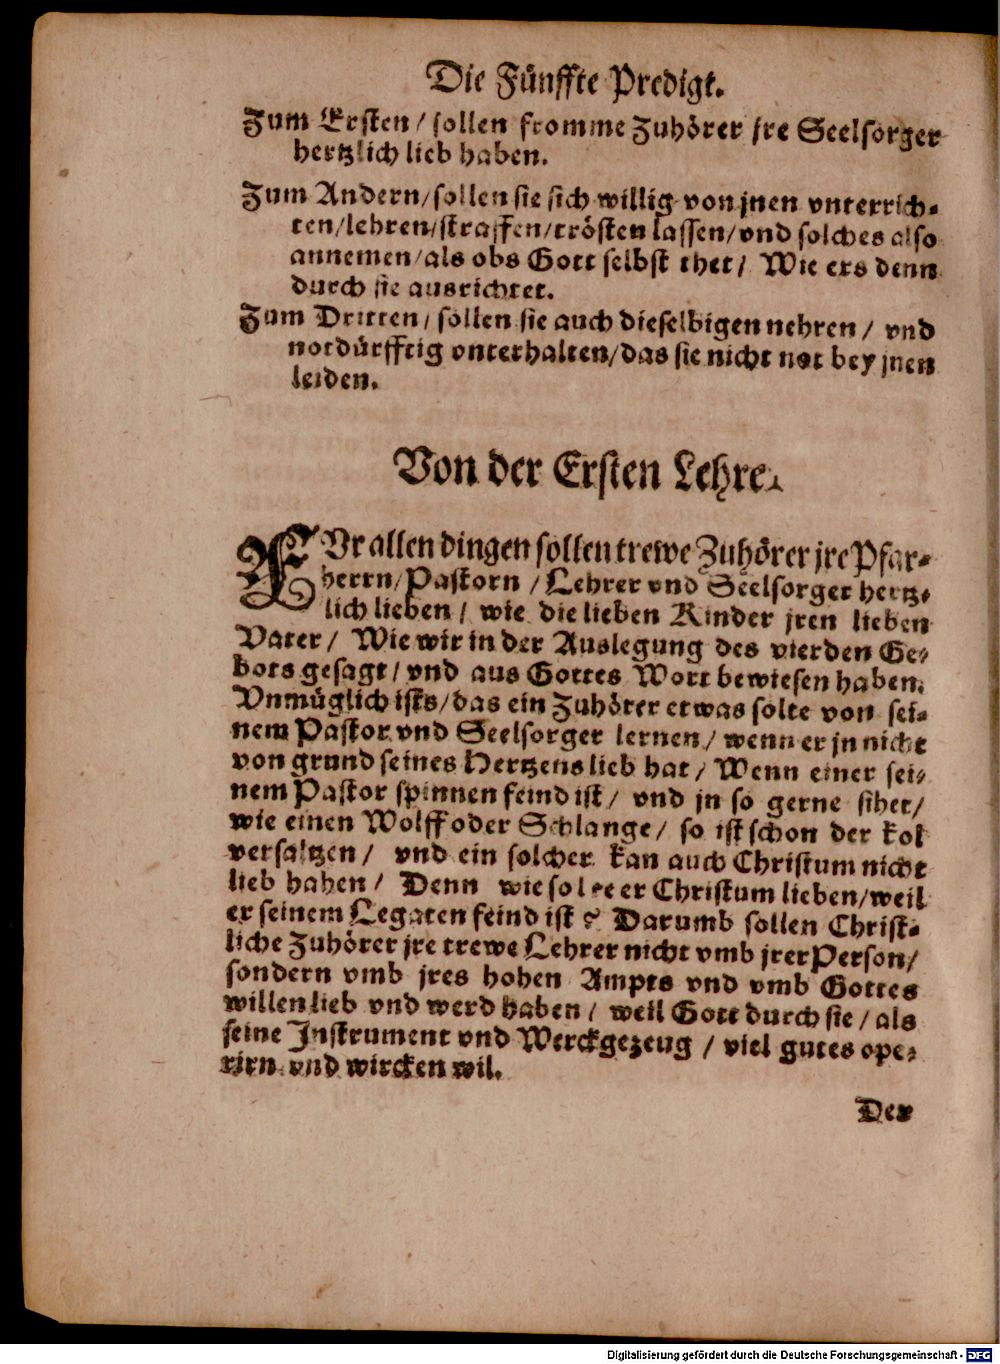 Die Fünffte Predigt.
Zum Ersten / sollen fromme Zuhörer jre Seelsorger
hertzlich lieb haben.
Zum Andern/sollen sie sich willig von jnen vnterrich-
ten/lehren/straffen/trösten lassen/vnd solches also
annemen/als obs Gott selbst thet/ Wie ers denn
durch sie ausrichtet.
Zum Dritten/ sollen sie auch dieselbigen nehren / vnd
notdürfftig vnterhalten/das sie nicht not bey jnen
leiden.
Von der Ersten Lehre.
Vr allen dingen sollen trewe Zuhörer jre Pfar-
herrn/Pastorn /Lehrer vnd Seelsorger hertz-
lich lieben / wie die lieben Kinder jren lieben
Vater / Wie wir in der Auslegung des vierden Ge-
bots gesagt / vnd aus Gottes Wort bewiesen haben.
Vnmüglich ists/das ein Zuhörer etwas solte von sei-
nem Pastor vnd Seelsorger lernen/ wenn er jn nicht
von grund seines Hertzens lieb hat / Wenn einer sei-
nem Pastor spinnen feind ist / vnd jn so gerne sihet/
wie einen Wolff oder Schlange/ so ist schon der kol
versaltzen / vnd ein solcher kan auch Christum nicht
lieb haben / Denn wie solte er Christum lieben/weil
er seinem Legaten feind ist? Darumb sollen Christ-
liche Zuhörer jre trewe Lehrer nicht vmb jrer Person/
sondern vmb jres hohen Ampts vnd vmb Gottes
willen lieb vnd werd haben / weil Gott durch sie / als
seine Instrument vnd Werckgezeug / viel gutes ope-
rirn vnd wircken wil.
Der
Digitalisierung gefördert durch die Deutsche Forschungsgemeinschaft - DFG